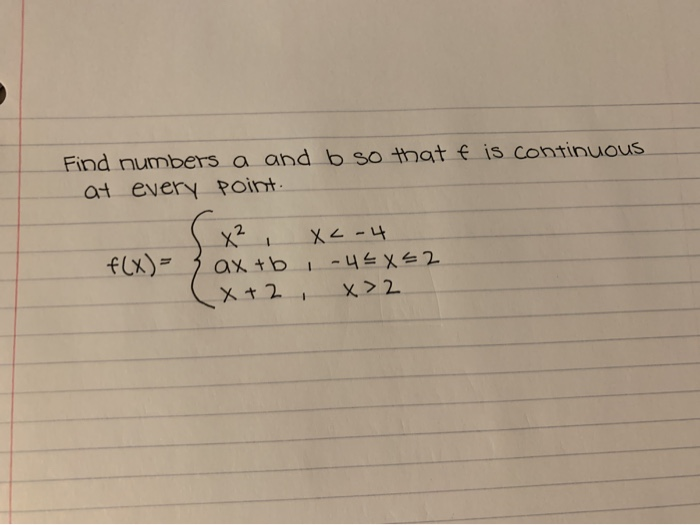 Find numbers a and b so that f is continuous
at every point.
x², x < -4
f(x) = { ax + b, -4 ≤ x ≤ 2
x + 2, x > 2